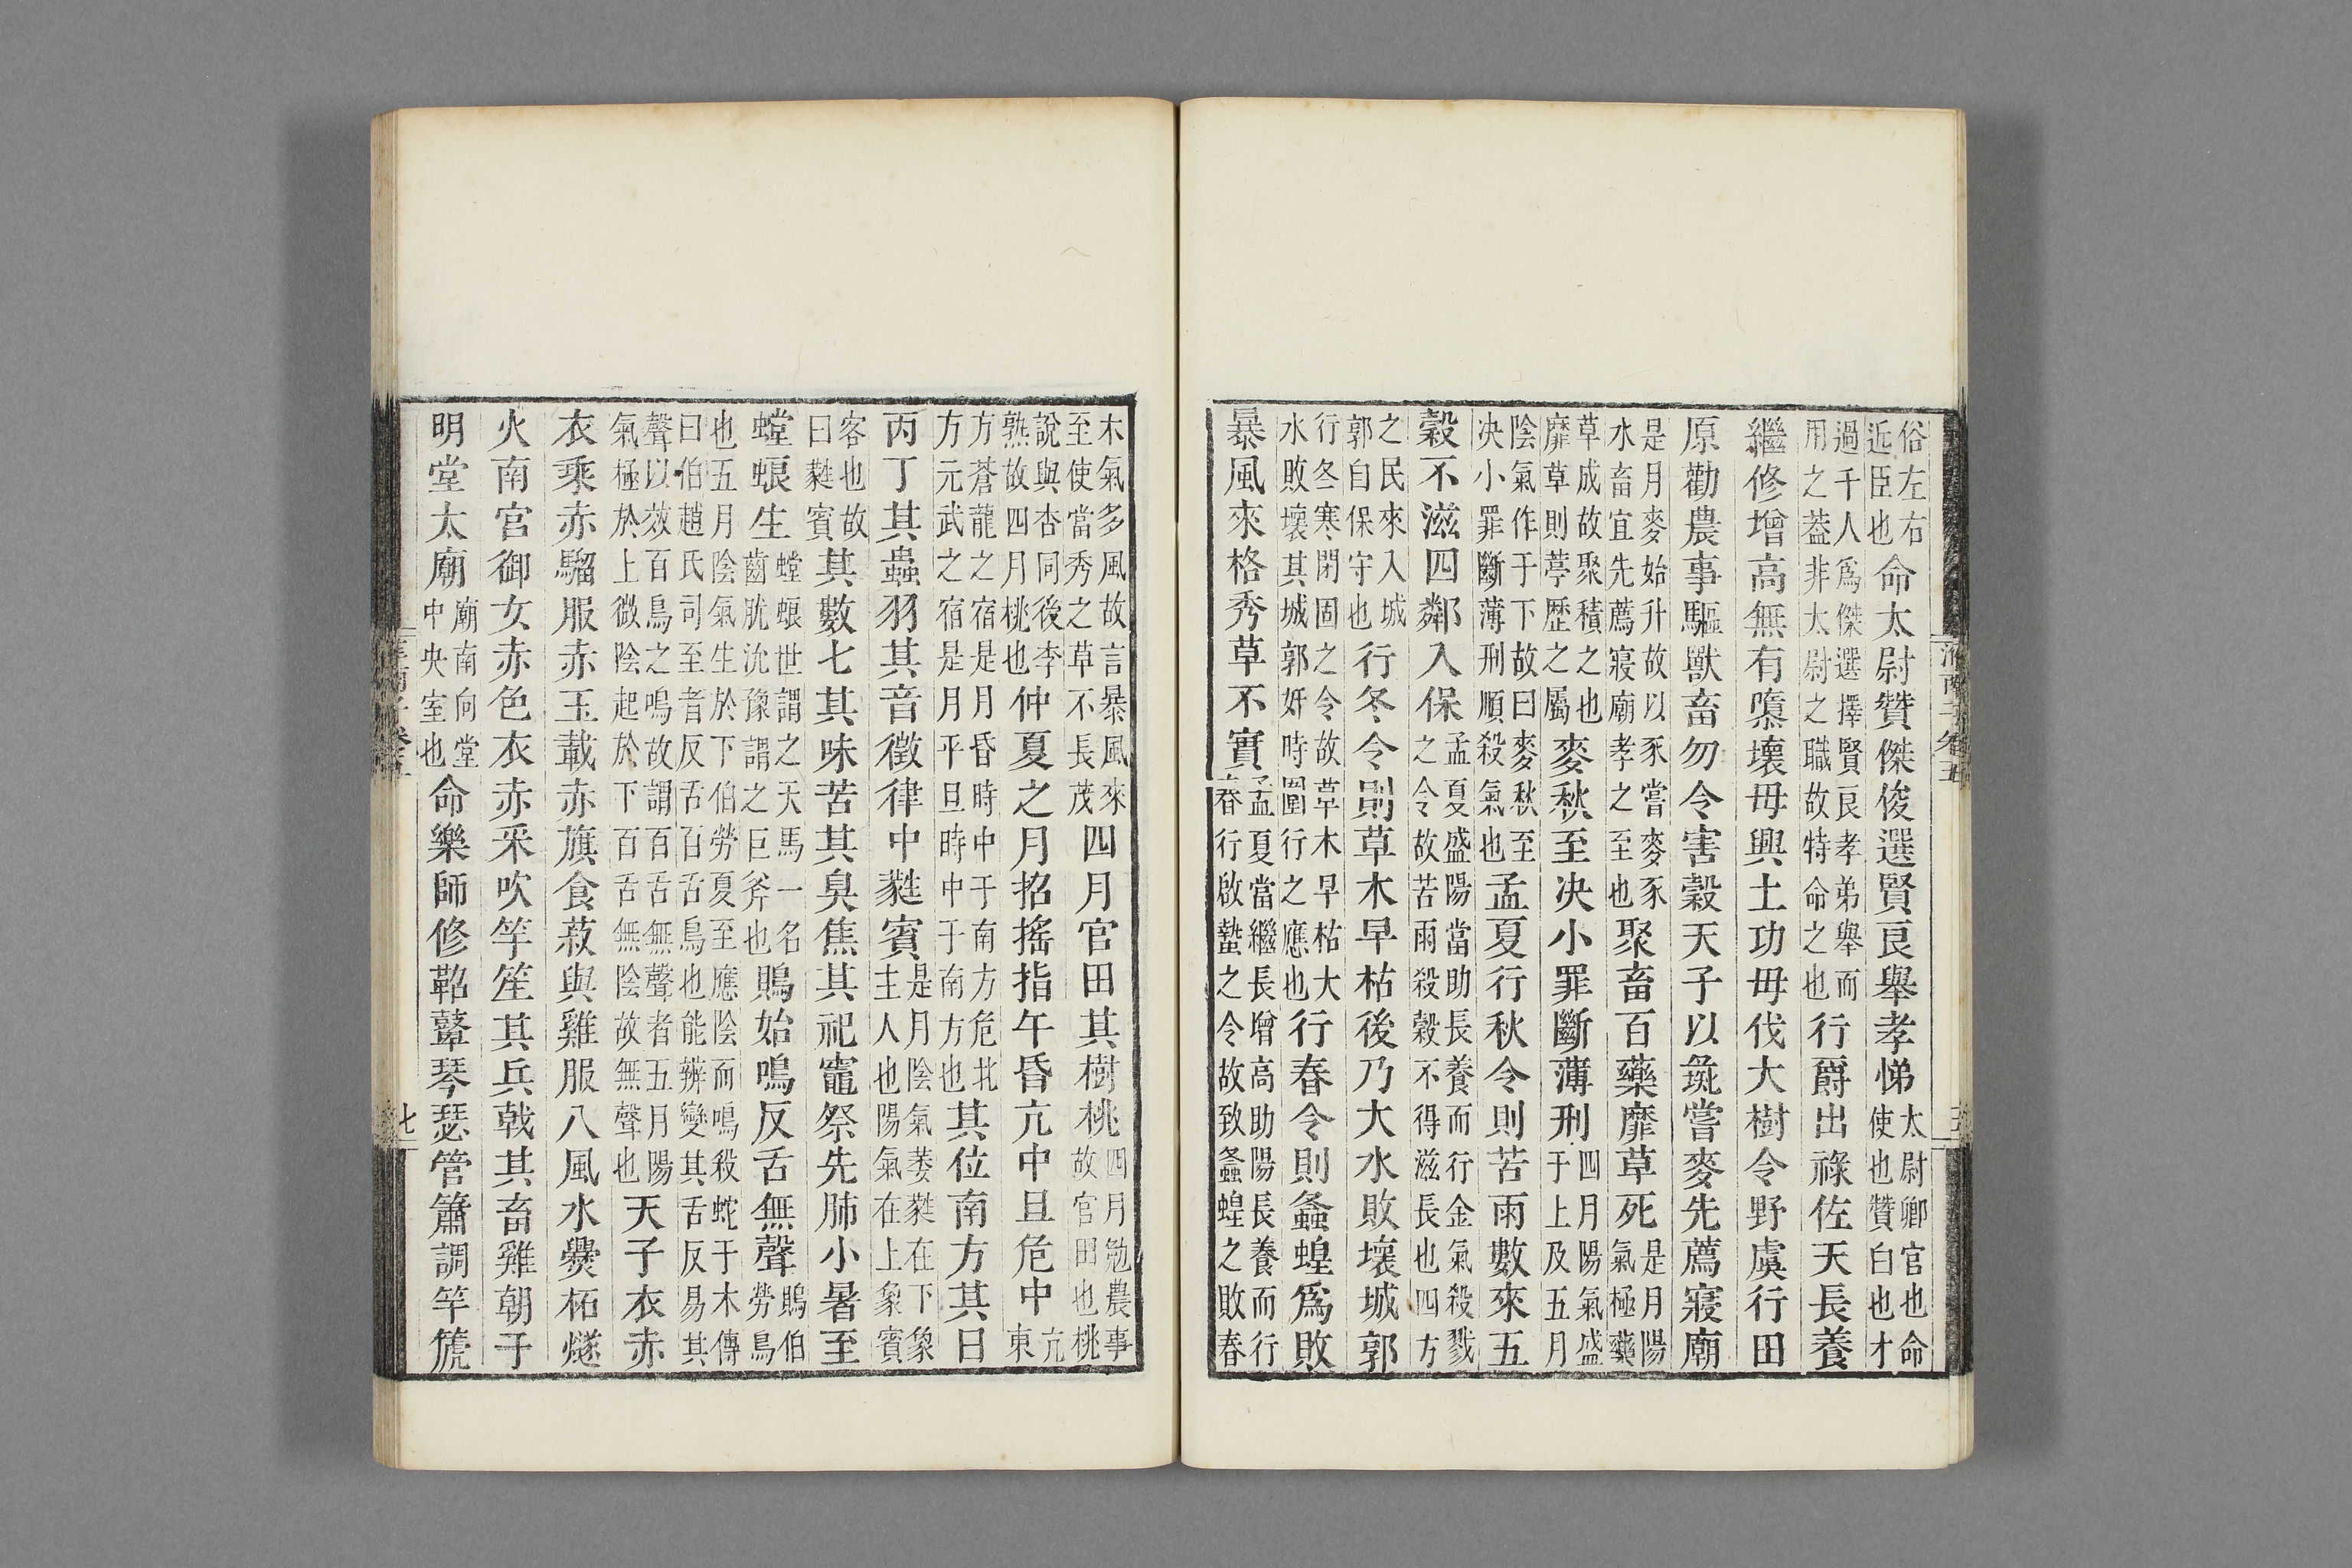 淮南子卷五
俗左右近臣也命太尉贊傑俊選賢良舉孝悌太尉卿官也命使也贊白也才
過千人爲傑選擇賢良孝弟舉而用之葢非太尉之職故特命之也行爵出祿佐天長養
繼修增高無有隳壞毋興土功毋伐大樹令野虞行田
原勸農事驅獸畜勿令害穀天子以彘嘗麥先薦寢廟
是月麥始升故以豕嘗麥豕水畜宜先薦寢廟孝之至也聚畜百藥靡草死是月陽氣極藥
草成故聚積之也靡草則葶歷之屬麥秋至決小罪斷薄刑四月陽氣盛于上及五月
陰氣作于下故曰麥秋至决小罪斷薄刑順殺氣也孟夏行秋令則苦雨數來五
穀不滋四鄰入保孟夏盛陽當助長養而行金氣殺戮之令故苦雨殺穀不得滋長也四方
之民來入城郭自保守也行冬令則草木早枯後乃大水敗壞城郭
行冬寒閉固之令故草木早枯大水敗壞其城郭姧時圍行之應也行春令則螽蝗爲敗
暴風來格秀草不實孟夏當繼長增高助陽長養而行春行啟蟄之令故致螽蝗之敗春
木氣多風故言暴風來至使當秀之草不長茂四月官田其樹桃四月勉農事故官田也桃
說與杏同後李熟故四月桃也仲夏之月招搖指午昏亢中旦危中亢東
方蒼龍之宿是月昏時中于南方危北方元武之宿是月平旦時中于南方也其位南方其日
丙丁其蟲羽其音徵律中蕤賓是月陰氣萎蕤在下象主人也陽氣在上象賓
客也故曰蕤賓其數七其味苦其臭焦其祀竈祭先肺小暑至
螳蜋生螳蜋世謂之天馬一名齒肬沇豫謂之巨斧也鵙始鳴反舌無聲鵙伯勞鳥
也五月陰氣生於下伯勞夏至應陰而鳴殺蛇于木傳曰伯趙氏司至者反舌百舌鳥也能辨變其舌反易其
聲以效百鳥之鳴故謂百舌無聲者五月陽氣極於上微陰起於下百舌無陰故無聲也天子衣赤
衣乘赤騮服赤玉載赤旗食菽與雞服八風水爨柘燧
火南宮御女赤色衣赤采吹竽笙其兵戟其畜雞朝于
明堂太廟廟南向堂中央室也命樂師修鞀鼙琴瑟管簫調竽篪
七